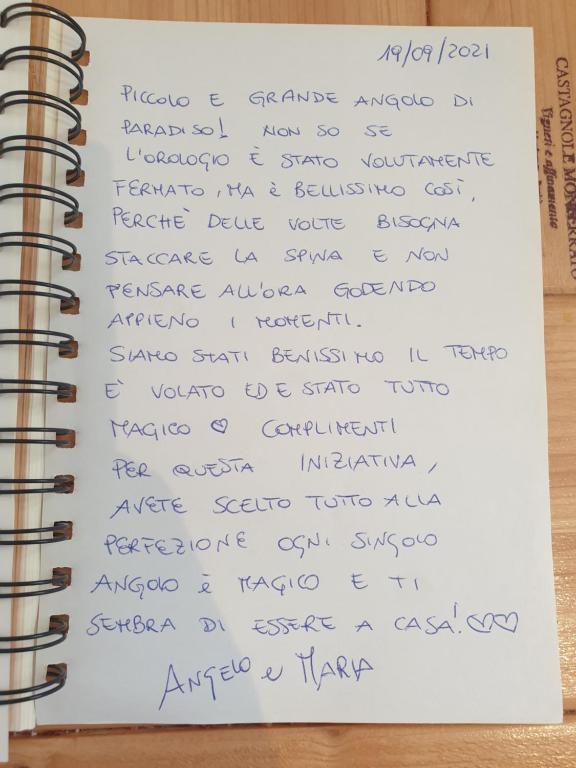 19/09/2021
PICCOLO E GRANDE ANGOLO DI
PARADISO! NON SO SE
L'OROLOGIO È STATO VOLUTAMENTE
FERMATO, MA È BELLISSIMO COSÌ,
PERCHÈ DELLE VOLTE BISOGNA
STACCARE LA SPINA E NON
PENSARE ALL'ORA GODENDO
APPIENO I MOMENTI.
SIAMO STATI BENISSIMO IL TEMPO
E' VOLATO ED E STATO TUTTO
MAGICO ♡ COMPLIMENTI
PER QUESTA INIZIATIVA,
AVETE SCELTO TUTTO ALLA
PERFEZIONE OGNI SINGOLO
ANGOLO È MAGICO E TI
SEMBRA DI ESSERE A CASA! ♡♡
ANGELO e MARIA
CASTAGNOLE MONFERRATO
Vigneti e affinamento